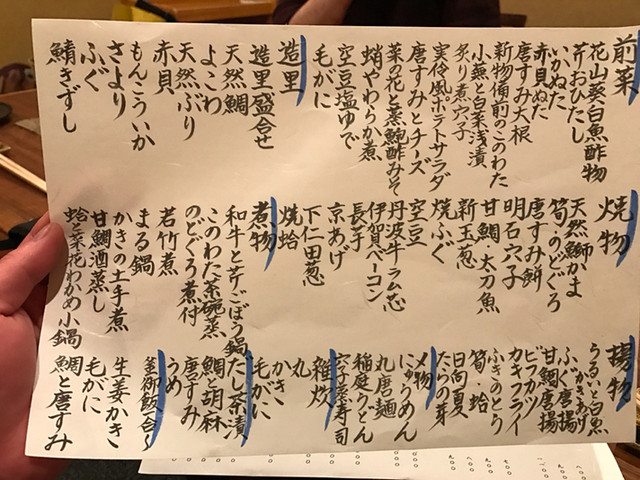 前菜
花山葵白魚酢物
芹おひたし
いかぬた
赤貝ぬた
唐すみ大根
新物備前このわた
小蕪と白菜浅漬
炙り煮穴子
実伶風ポテトサラダ
唐すみとチーズ
菜の花と蒸鮑酢みそ
蛸やわらか煮
空豆塩ゆで
毛がに
造里
造里盛合せ
天然鯛
よこわ
天然ぶり
赤貝
もんこういか
さより
ふぐ
鯖きずし
焼物
天然鰤かま
筍・のどぐろ
唐すみ餅
明石穴子
甘鯛・太刀魚
新玉葱
焼ふぐ
空豆
丹波牛ラム芯
伊賀ベーコン
長芋
京あげ
下仁田葱
焼蛤
煮物
和牛と芹ごぼう鍋
このわた茶碗蒸
のどぐろ煮付
若竹煮
まる鍋
かきの土手煮
甘鯛酒蒸し
蛤と菜花わかめ小鍋
揚物
うるいと白魚
かきあげ
ふぐ唐揚
甘鯛唐揚
ビフカツ
カキフライ
ふきのとう
筍・蛤
日向夏
たらの芽
〆物
にゅうめん
丸唐麺
稲庭うどん
穴子蒸寿司
雑炊
丸
かき
毛がに
だし茶漬
鯛と胡麻
唐すみ
うめ
釜御飯(一合〜)
生姜かき
毛がに
鯛と唐すみ